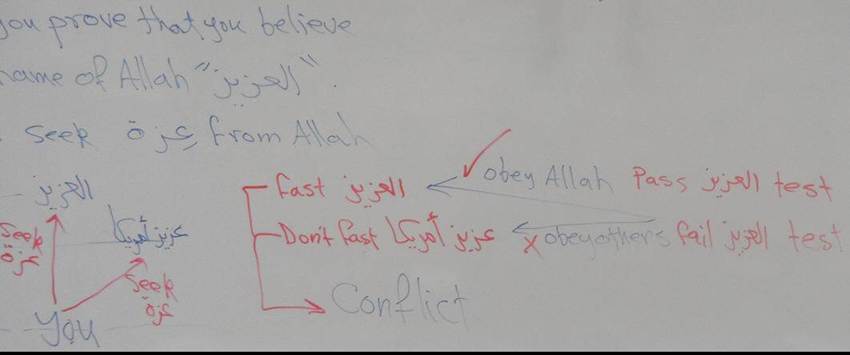 you prove that you believe
name of Allah "العزيز".
seek عزة from Allah
العزيز
Fast العزيز obey Allah Pass العزيز test
Seek عزة
عزيز أمريكا
Don't fast عزيز أمريكا x obey others fail العزيز test
Seek عزة
Conflict
You